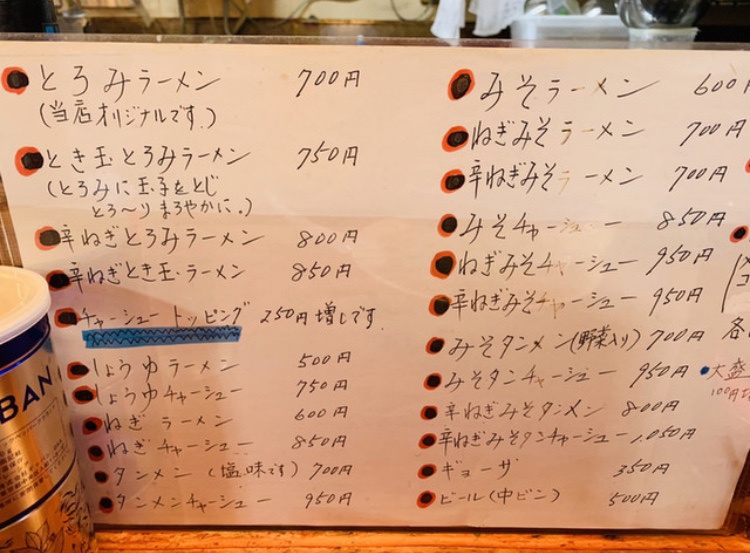 とろみラーメン 700円
(当店オリジナルです。)
とき玉とろみラーメン 750円
(とろみに玉子をとじ
とろ〜りまろやかに。)
辛ねぎとろみラーメン 800円
辛ねぎとき玉ラーメン 850円
チャーシュートッピング 250円増しです。
しょうゆラーメン 500円
しょうゆチャーシュー 750円
ねぎラーメン 600円
ねぎチャーシュー 850円
タンメン(塩味です) 700円
タンメンチャーシュー 950円
みそラーメン 600円
ねぎみそラーメン 700円
辛ねぎみそラーメン 700円
みそチャーシュー 850円
ねぎみそチャーシュー 950円
辛ねぎみそチャーシュー 950円
みそタンメン(野菜入り) 700円
みそタンチャーシュー 950円
辛ねぎみそタンメン 800円
辛ねぎみそタンチャーシュー 1,050円
ギョーザ 350円
ビール(中ビン) 500円
各
大盛
100円
BAN